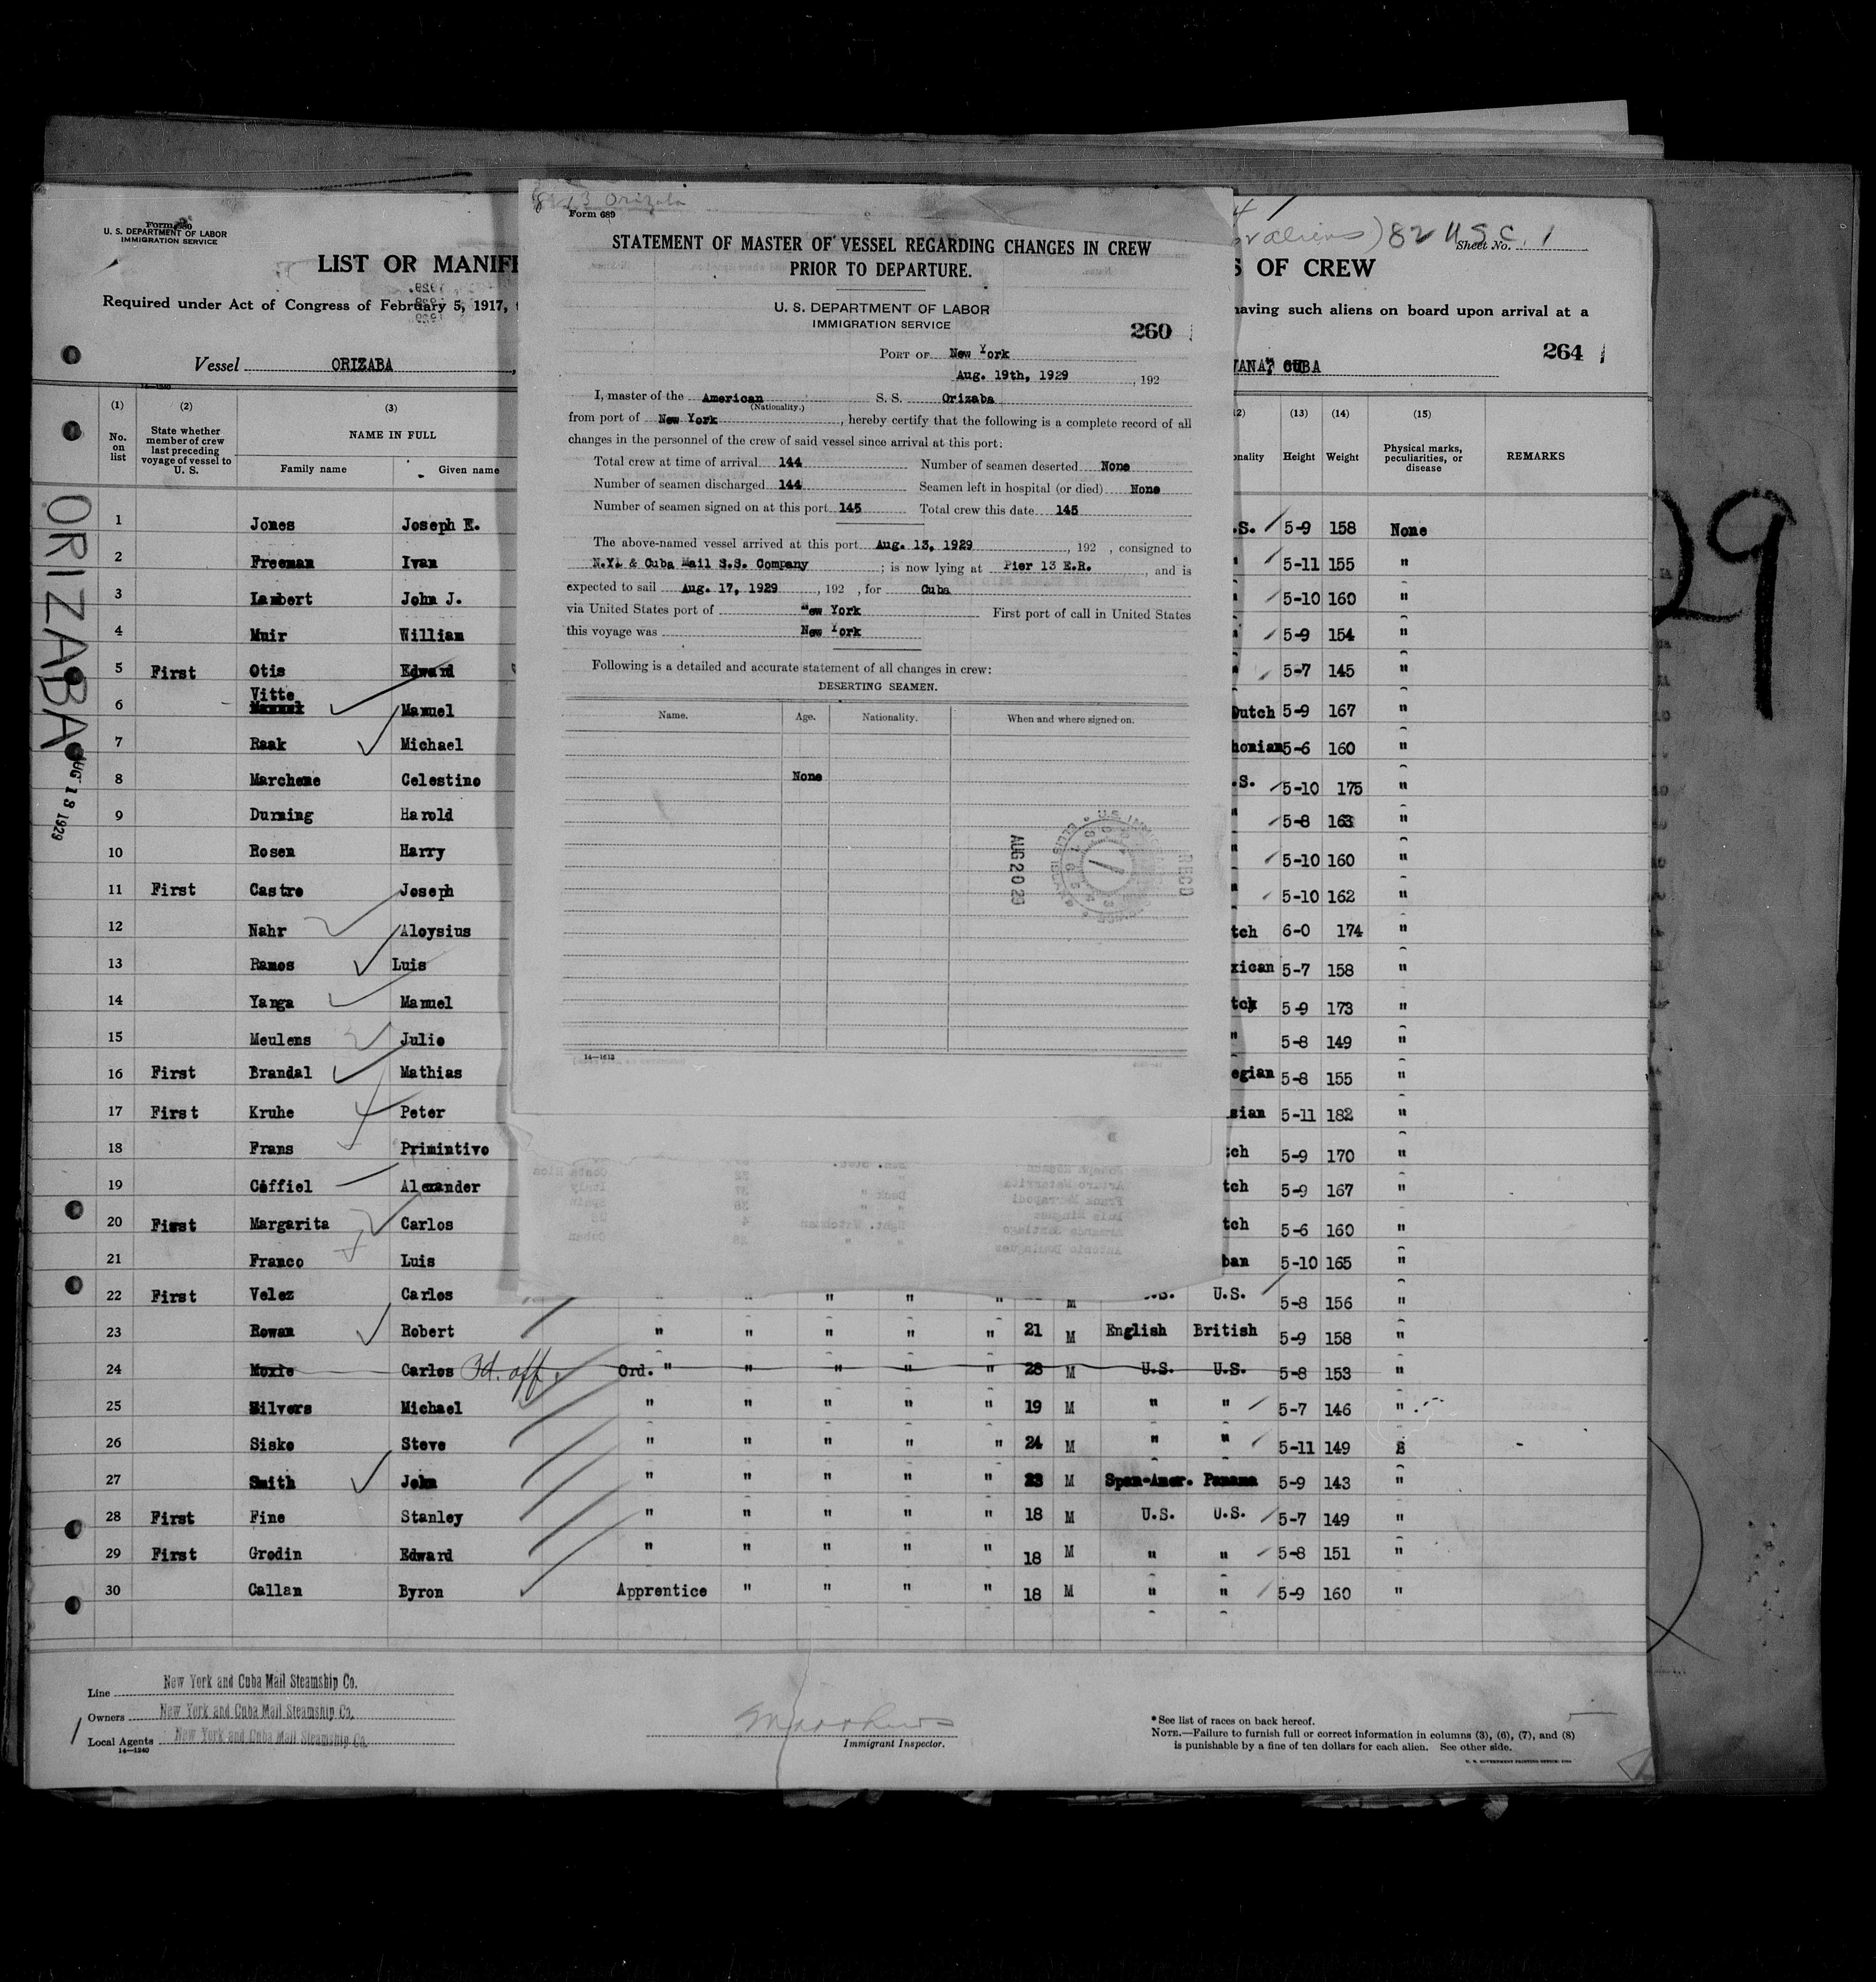 8/13 Orizaba
Form 689
STATEMENT OF MASTER OF VESSEL REGARDING CHANGES IN CREW
PRIOR TO DEPARTURE.
U. S. DEPARTMENT OF LABOR
IMMIGRATION SERVICE
260
PORT OF New York
Aug. 19th, 1929, 192
I, master of the American S. S. Orizaba
(Nationality.)
from port of New York, hereby certify that the following is a complete record of all
changes in the personnel of the crew of said vessel since arrival at this port:
Total crew at time of arrival 144 Number of seamen deserted None
Number of seamen discharged 144 Seamen left in hospital (or died) None
Number of seamen signed on at this port 145 Total crew this date 145
The above-named vessel arrived at this port Aug. 13, 1929, 192 , consigned to
N.Y. & Cuba Mail S.S. Company; is now lying at Pier 13 E.R., and is
expected to sail Aug. 17, 1929, 192 , for Cuba
via United States port of New York First port of call in United States
this voyage was New York
Following is a detailed and accurate statement of all changes in crew:
DESERTING SEAMEN.
Name. Age. Nationality. When and where signed on.
None
AUG 20 29
REC'D
14—1613
U. S. DEPARTMENT OF LABOR
IMMIGRATION SERVICE
82 U.S.C.
Sheet No. 1
LIST OR MANIF
S OF CREW
Required under Act of Congress of February 5, 1917,
having such aliens on board upon arrival at a
264
Vessel ORIZABA
CUBA
(1) (2) (3) (13) (14) (15)
No. on list
State whether member of crew last preceding voyage of vessel to U. S.
NAME IN FULL
Family name Given name
Height Weight
Physical marks, peculiarities, or disease
REMARKS
ORIZABA
AUG 13 1929
29
1 Jones Joseph E. .S. 5-9 158 None
2 Freeman Ivan " 5-11 155 "
3 Lambert John J. " 5-10 160 "
4 Muir William " 5-9 154 "
5 First Otis Edward " 5-7 145 "
6 Vitte Manuel Dutch 5-9 167 "
7 Raak Michael honian 5-6 160 "
8 Marchene Celestino .S. 5-10 175 "
9 Durning Harold " 5-8 163 "
10 Rosen Harry " 5-10 160 "
11 First Castro Joseph " 5-10 162 "
12 Nahr Aloysius tch 6-0 174 "
13 Ramos Luis xican 5-7 158 "
14 Yanga Manuel tch 5-9 173 "
15 Meulens Julio " 5-8 149 "
16 First Brandal Mathias egian 5-8 155 "
17 First Kruhe Peter sian 5-11 182 "
18 Frans Primintivo ch 5-9 170 "
19 Coffiel Alexander tch 5-9 167 "
20 First Margarita Carlos tch 5-6 160 "
21 Franco Luis ban 5-10 165 "
22 First Velez Carlos " " " " M U.S. U.S. 5-8 156 "
23 Rowan Robert " " " " " 21 M English British 5-9 158 "
24 Moxie Carlos Ord. " " " " " 28 M U.S. U.S. 5-8 153 "
25 Michael " " " " " 19 M " " 5-7 146 "
26 Siske Steve " " " " " 24 M " " 5-11 149
27 Smith John " " " " " 23 M Span-Amer. Panama 5-9 143 "
28 First Fine Stanley " " " " " 18 M U.S. U.S. 5-7 149 "
29 First Grodin Edward " " " " " 18 M " " 5-8 151 "
30 Callan Byron Apprentice " " " " 18 M " " 5-9 160 "
Line New York and Cuba Mail Steamship Co.
Owners New York and Cuba Mail Steamship Co.
Local Agents New York and Cuba Mail Steamship Co.
14—1240
Immigrant Inspector.
*See list of races on back hereof.
NOTE.—Failure to furnish full or correct information in columns (3), (6), (7), and (8)
is punishable by a fine of ten dollars for each alien. See other side.